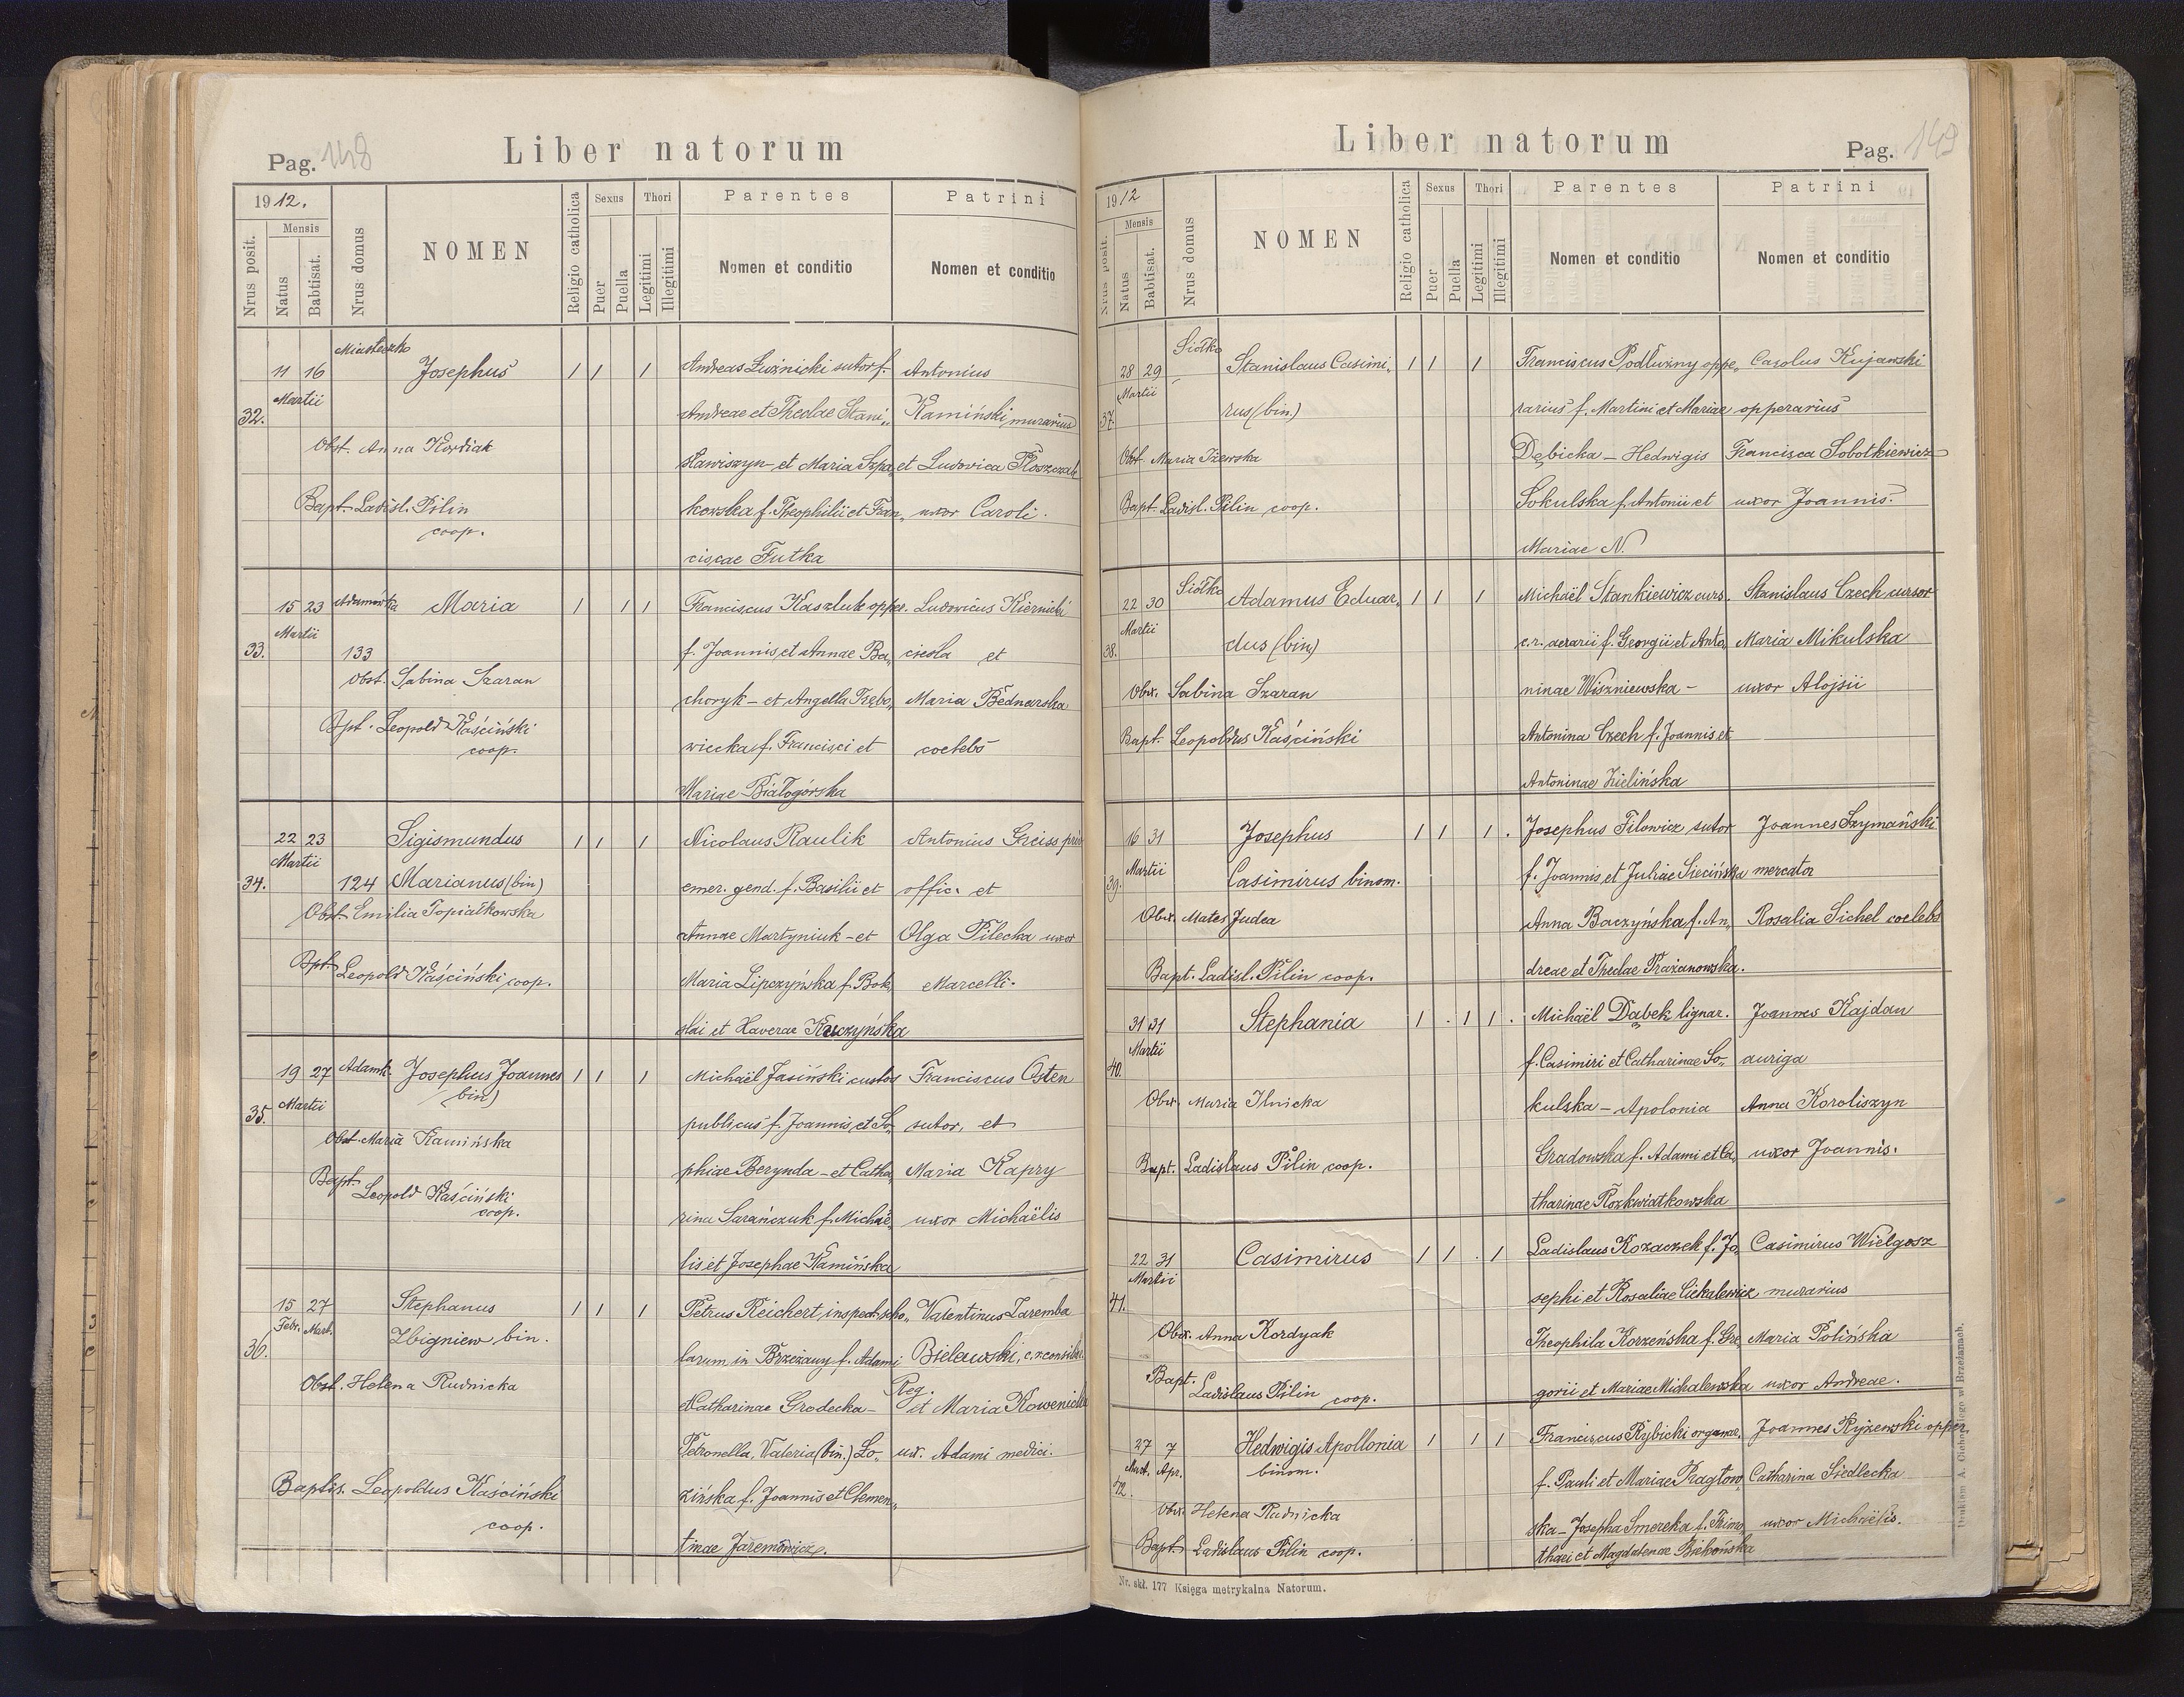 Pag. 148
Liber natorum
1912.
Nrus posit.
Mensis
Natus
Babtisat.
Nrus domus
NOMEN
Religio catholica
Sexus
Puer
Puella
Thori
Legitimi
Illegitimi
Parentes
Nomen et conditio
Patrini
Nomen et conditio
32.
11 16
Martii
Miasteczko
Josephus
1 1 1
Obst. Anna Kordiak
Bapt. Ladisl. Pilin
coop.
Andreas Luznicki sutor f.
Andreae et Theclae Stani„
slawiszyn - et Maria Szpa„
kowska f. Theophilii et Fran„
ciscae Futka
Antonius
Kamiński murarius
et Ludovica
uxor Caroli.
33.
15 23
Martii
Adamówka
133
Maria
1 1 1
Obst. Sabina Szaran
Bpt. Leopold Kaściński
coop.
Franciscus Kaszluk oppe.
f. Joannis et Annae Ba„
choryk - et Angella Trębo„
wiecka f. Francisci et
Mariae Białogórska
Ludovicus Kiernicki
ciesla et
Maria Bednarska
coelebs
34.
22 23
Martii
124
Sigismundus
Marianus (bin)
1 1 1
Obst. Emilia Topiatkowska
Bpt. Leopold Kaściński coop.
Nicolaus Raulik
emer. gend. f. Basilii et
Annae Martyniuk - et
Maria Lipczyńska f. Bole„
slai et Xaverae Kuczyńska
Antonius Greiss priv.
offic. et
Olga Pilecka uxor
Marcelli.
35.
19 27
Martii
Adamk.
Josephus Joannes
bin)
1 1 1
Obst. Maria Kamińska
Bapt. Leopold Kaściński
coop.
Michaël Jasiński custos
publicus f. Joannis et So„
phiae Berynda - et Catha„
rina Sarańczuk f. Michaë„
lis et Josephae Kamińska
Franciscus Osten
sutor, et
Maria Kapry
uxor Michaëlis
36.
15 27
Febr. Mart.
Stephanus
Zbigniew bin.
1 1 1
Obst. Helena Rudnicka
Baptis. Leopoldus Kaściński
coop.
Petrus Reichert, inspect. scho„
larum in Brzeżany f. Adami
Catharinae Grodecka -
Petronella, Valeria (bin.) Lo„
zińska f. Joannis et Clemen„
tinae Jaremowicz.
Valentinus Zaremba
Bielawski, c.r. consiliar.
Reg.
et Maria
ux. Adami medici.
Liber natorum
Pag. 149
1912
Nrus posit.
Mensis
Natus
Babtisat.
Nrus domus
NOMEN
Religio catholica
Sexus
Puer
Puella
Thori
Legitimi
Illegitimi
Parentes
Nomen et conditio
Patrini
Nomen et conditio
37.
28 29
Martii
Siółko
Stanislaus Casimi„
rus (bin.)
1 1 1
Obst. Maria Iżewska
Bapt. Ladisl. Pilin coop.
Franciscus Podluzny oppe„
rarius f. Martini et Mariae
Dębicka - Hedwigis
Sokulska f. Antonii et
Mariae N.
Carolus Kujawski
opperarius
Francisca Sobotkiewicz
uxor Joannis.
38.
22 30
Martii
Siółko
Adamus Eduar„
dus (bin)
1 1 1
Obx. Sabina Szaran
Bapt. Leopoldus Kaściński
Michaël Stankiewicz curs.
c.r. aerarii f. Georgii et Anto„
ninae Wiszniewska -
Antonina Czech f. Joannis et
Antoninae Zielińska
Stanislaus Czech cursor
Maria Mikulska
uxor Alojsii
39.
16 31
Martii
Josephus
Casimirus binom.
1 1 1
Obx. Mates Judea
Bapt. Ladisl. Pilin coop.
Josephus Filowicz sutor
f. Joannis et Juliae Siecińska
Anna Baczyńska f. An„
dreae et Theclae Prażanowska.
Joannes Szymański
mercator
Rosalia Sichel coelebs
40.
31 31
Martii
Stephania
1 1 1
Obx. Maria Ilnicka
Bapt. Ladislaus Pilin coop.
Michaël Dąbek lignar.
f. Casimiri et Catharinae So„
kulska - Apolonia
Gradowska f. Adami et Ca„
tharinae Rozkwiatkowska
Joannes Kajdan
auriga
Anna Koroliszyn
uxor Joannis.
41.
22 31
Martii
Casimirus
1 1 1
Obx. Anna Kordyak
Bapt. Ladislaus Pilin
coop.
Ladislaus Kozaczek f. Jo„
sephi et Rosaliae Cichulewicz
Theophila Korzeńska f. Gre„
gorii et Mariae Michalewska
Casimirus Wielgosz
murarius
Maria Polińska
uxor Andreae.
42.
27 7
Mart. Apr.
Hedwigis Apollonia
binom.
1 1 1
Obx. Helena Rudnicka
Bapt. Ladislaus Pilin coop.
Franciscus Rybicki organar.
f. Pauli et Mariae Pragłow„
ska - Josepha Smereka f. Timo„
thaei et Magdalenae
Joannes Ryżewski opper.
Catharina Siedlecka
uxor Michaëlis.
Nr. skł. 177 Księga metrykalna Natorum.
Drukiem A. Cichockiego w Brzeżanach.